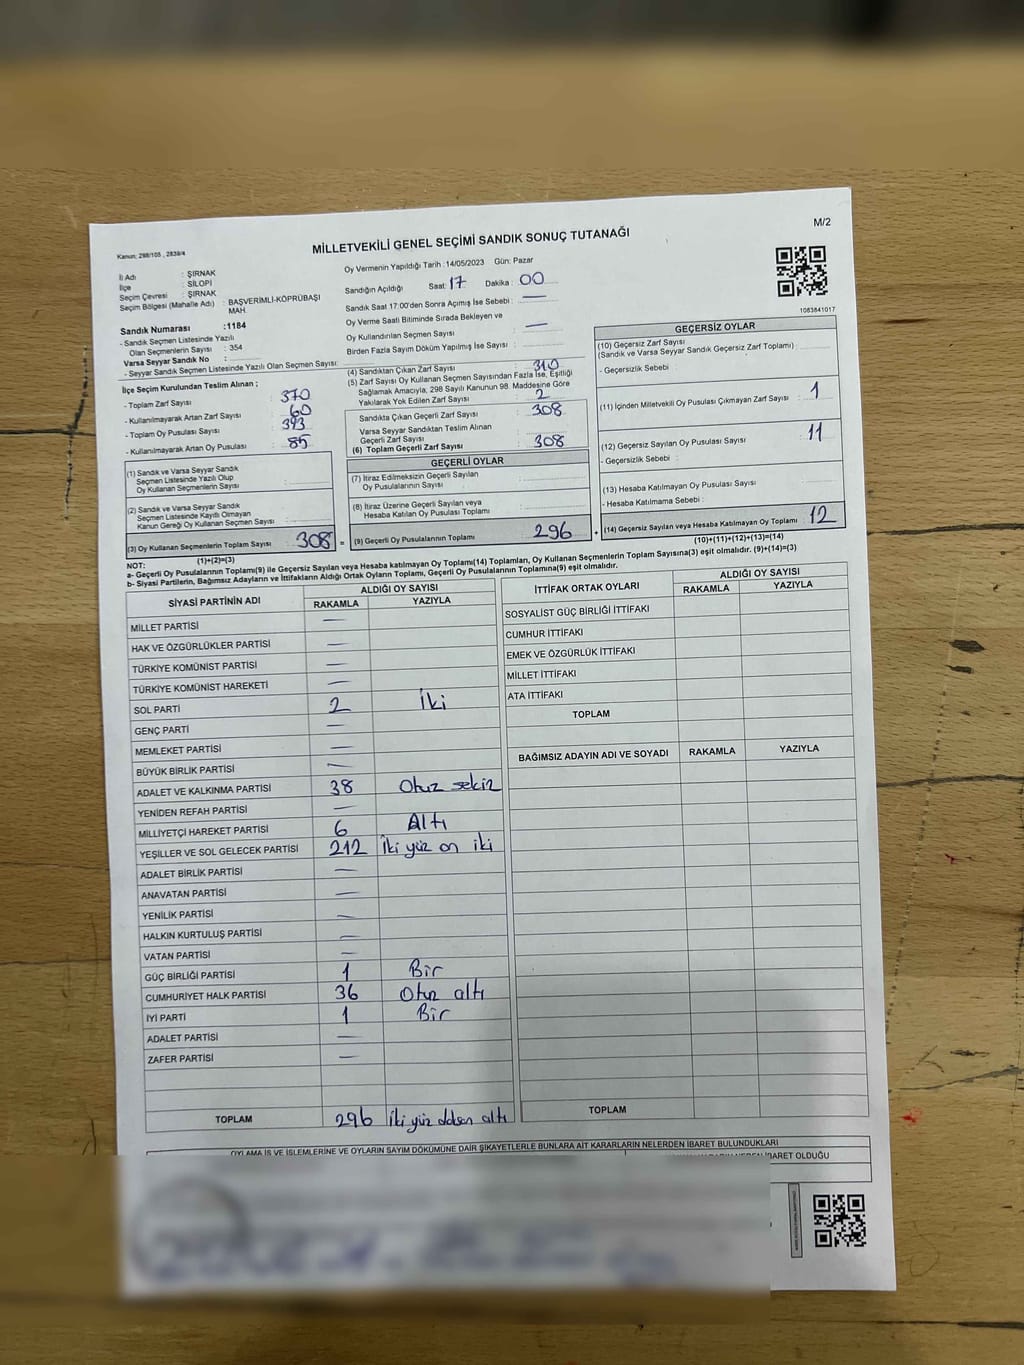 M/2
MİLLETVEKİLİ GENEL SEÇİMİ SANDIK SONUÇ TUTANAĞI
Kanun; 298/105 , 2839/4
İl Adı : ŞIRNAK
İlçe : SİLOPİ
Seçim Çevresi : ŞIRNAK
Seçim Bölgesi (Mahalle Adı) : BAŞVERİMLİ-KÖPRÜBAŞI MAH.
Sandık Numarası :1184
- Sandık Seçmen Listesinde Yazılı
Olan Seçmenlerin Sayısı : 354
Varsa Seyyar Sandık No :
- Seyyar Sandık Seçmen Listesinde Yazılı Olan Seçmen Sayısı:
İlçe Seçim Kurulundan Teslim Alınan ;
- Toplam Zarf Sayısı : 370
- Kullanılmayarak Artan Zarf Sayısı : 60
- Toplam Oy Pusulası Sayısı : 393
- Kullanılmayarak Artan Oy Pusulası : 85
(1) Sandık ve Varsa Seyyar Sandık
Seçmen Listesinde Yazılı Olup
Oy Kullanan Seçmenlerin Sayısı :
(2) Sandık ve Varsa Seyyar Sandık
Seçmen Listesinde Kayıtlı Olmayan
Kanun Gereği Oy Kullanan Seçmen Sayısı :
(3) Oy Kullanan Seçmenlerin Toplam Sayısı 308 =
(1)+(2)=(3)
Oy Vermenin Yapıldığı Tarih : 14/05/2023 Gün: Pazar
Sandığın Açıldığı Saat: 17 Dakika : 00
Sandık Saat 17.00'den Sonra Açılmış İse Sebebi : —
Oy Verme Saati Bitiminde Sırada Bekleyen ve
Oy Kullandırılan Seçmen Sayısı : —
Birden Fazla Sayım Döküm Yapılmış İse Sayısı :
(4) Sandıktan Çıkan Zarf Sayısı : 310
(5) Zarf Sayısı Oy Kullanan Seçmen Sayısından Fazla İse, Eşitliği
Sağlamak Amacıyla, 298 Sayılı Kanunun 98. Maddesine Göre
Yakılarak Yok Edilen Zarf Sayısı : 2
Sandıkta Çıkan Geçerli Zarf Sayısı : 308
Varsa Seyyar Sandıktan Teslim Alınan
Geçerli Zarf Sayısı :
(6) Toplam Geçerli Zarf Sayısı : 308
GEÇERLİ OYLAR
(7) İtiraz Edilmeksizin Geçerli Sayılan
Oy Pusulalarının Sayısı :
(8) İtiraz Üzerine Geçerli Sayılan veya
Hesaba Katılan Oy Pusulası Toplamı :
(9) Geçerli Oy Pusulalarının Toplamı 296 +
1083841017
GEÇERSİZ OYLAR
(10) Geçersiz Zarf Sayısı
(Sandık ve Varsa Seyyar Sandık Geçersiz Zarf Toplamı) :
- Geçersizlik Sebebi :
(11) İçinden Milletvekili Oy Pusulası Çıkmayan Zarf Sayısı : 1
(12) Geçersiz Sayılan Oy Pusulası Sayısı : 11
- Geçersizlik Sebebi :
(13) Hesaba Katılmayan Oy Pusulası Sayısı :
- Hesaba Katılmama Sebebi :
(14) Geçersiz Sayılan veya Hesaba Katılmayan Oy Toplamı 12
(10)+(11)+(12)+(13)=(14)
NOT:
a- Geçerli Oy Pusulalarının Toplamı(9) ile Geçersiz Sayılan veya Hesaba katılmayan Oy Toplamı(14) Toplamları, Oy Kullanan Seçmenlerin Toplam Sayısına(3) eşit olmalıdır. (9)+(14)=(3)
b- Siyasi Partilerin, Bağımsız Adayların ve İttifakların Aldığı Ortak Oyların Toplamı, Geçerli Oy Pusulalarının Toplamına(9) eşit olmalıdır.
SİYASİ PARTİNİN ADI ALDIĞI OY SAYISI
RAKAMLA YAZIYLA
MİLLET PARTİSİ —
HAK VE ÖZGÜRLÜKLER PARTİSİ —
TÜRKİYE KOMÜNİST PARTİSİ —
TÜRKİYE KOMÜNİST HAREKETİ —
SOL PARTİ 2 İki
GENÇ PARTİ —
MEMLEKET PARTİSİ —
BÜYÜK BİRLİK PARTİSİ —
ADALET VE KALKINMA PARTİSİ 38 Otuz sekiz
YENİDEN REFAH PARTİSİ —
MİLLİYETÇİ HAREKET PARTİSİ 6 Altı
YEŞİLLER VE SOL GELECEK PARTİSİ 212 İki yüz on iki
ADALET BİRLİK PARTİSİ —
ANAVATAN PARTİSİ —
YENİLİK PARTİSİ —
HALKIN KURTULUŞ PARTİSİ —
VATAN PARTİSİ —
GÜÇ BİRLİĞİ PARTİSİ 1 Bir
CUMHURİYET HALK PARTİSİ 36 Otuz altı
İYİ PARTİ 1 Bir
ADALET PARTİSİ —
ZAFER PARTİSİ —
TOPLAM 296 iki yüz doksan altı
İTTİFAK ORTAK OYLARI ALDIĞI OY SAYISI
RAKAMLA YAZIYLA
SOSYALİST GÜÇ BİRLİĞİ İTTİFAKI
CUMHUR İTTİFAKI
EMEK VE ÖZGÜRLÜK İTTİFAKI
MİLLET İTTİFAKI
ATA İTTİFAKI
TOPLAM
BAĞIMSIZ ADAYIN ADI VE SOYADI RAKAMLA YAZIYLA
TOPLAM
OYLAMA İŞ VE İŞLEMLERİNE VE OYLARIN SAYIM DÖKÜMÜNE DAİR ŞİKAYETLERLE BUNLARA AİT KARARLARIN NELERDEN İBARET BULUNDUKLARI
İBARET OLDUĞU